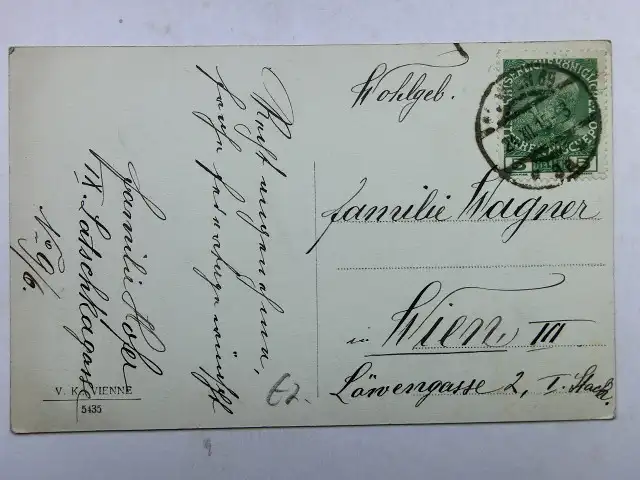 Recht angenehme,
frohe Feiertage wünscht
Familie Hofer
IX. Latschkagasse
No 9/6.
Wohlgeb.
Familie Wagner
in Wien III
Löwengasse 2, I. Stock.
V. K. VIENNE
5435